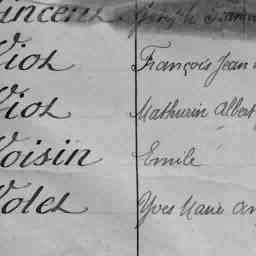 incent Joseph
Viol François Jean
Viol Mathurin Albert
Voisin Emile
Volet Yves Marie